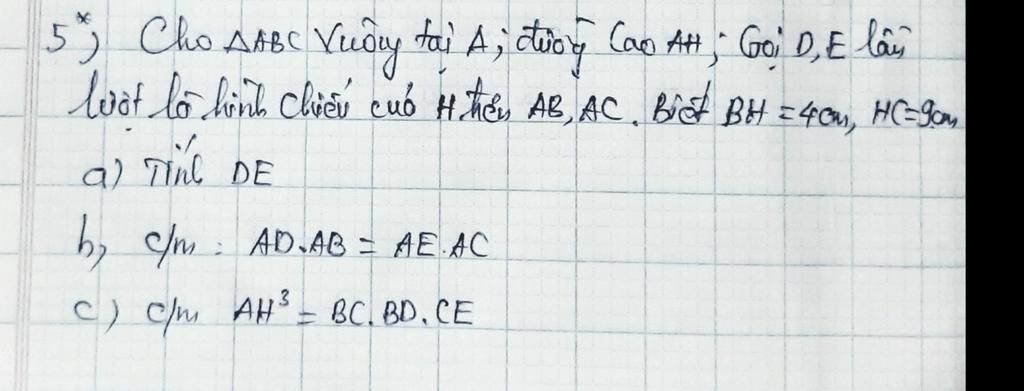 5*) Cho ΔABC Vuông tại A; đường Cao AH; Gọi D, E lần
lượt là hình chiếu của H trên AB, AC. Biết BH = 4cm, HC = 9cm
a) Tính DE
b) c/m : AD.AB = AE.AC
c) c/m AH³ = BC.BD.CE